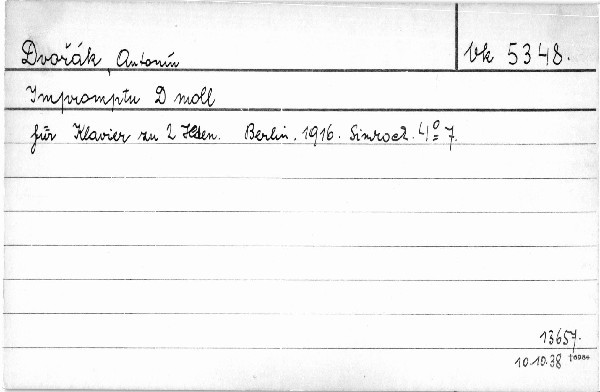 Dvořák, Antonín
Vk 5348.
Impromptu D moll
für Klavier zu 2 Hden. Berlin. 1916. Simrock. 4º 7.
13657.
10.10.38 16984